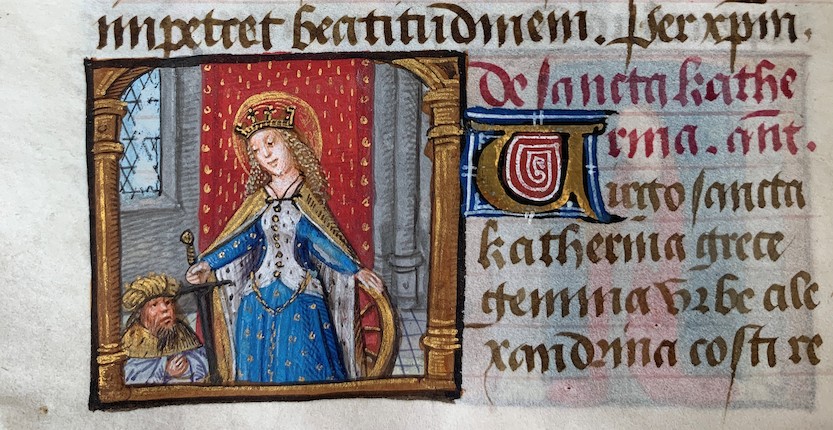 impetret beatitudinem. Per xpm.
De sancta kathe
rina. ant.
Virgo sancta
katherina grece
gemma vrbe ale
xandrina costi re